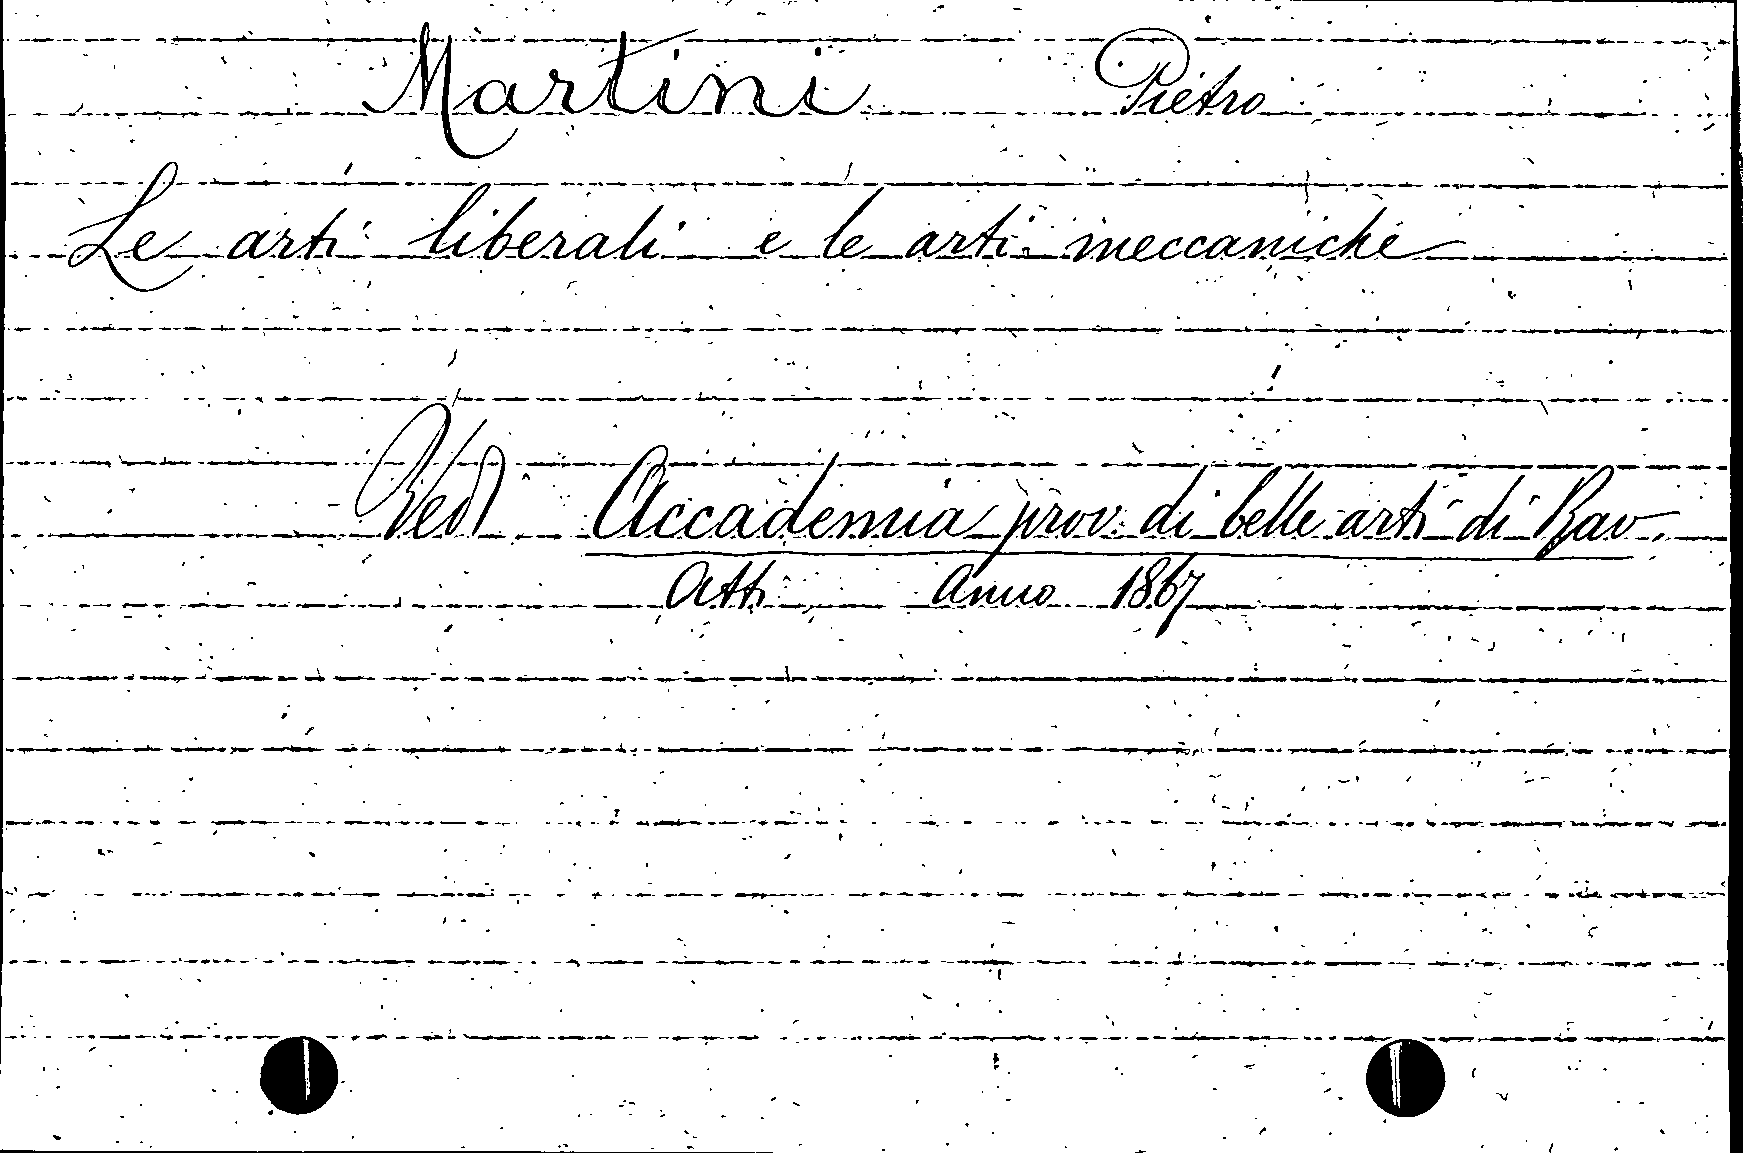 Martini Pietro
Le arti liberali e le arti meccaniche
Vedi Accademia prov. di belle arti di Rav.
Atti Anno 1867